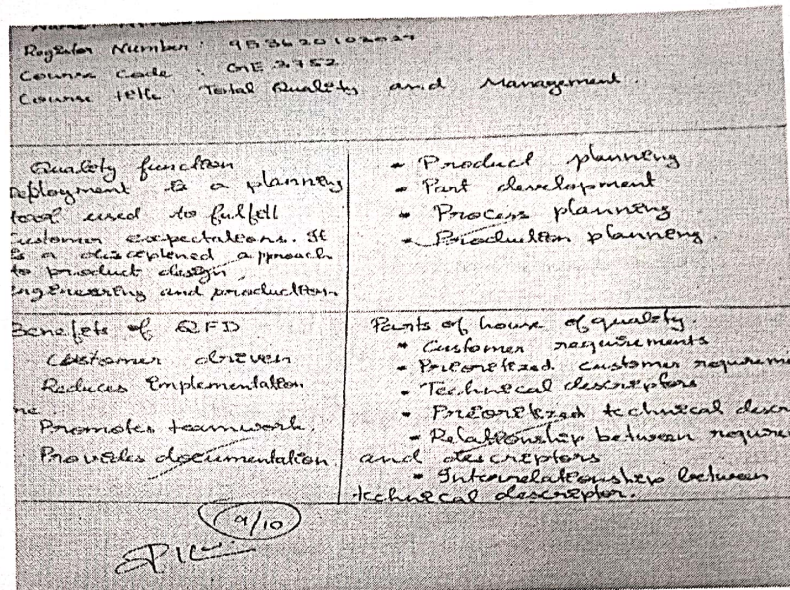 Register Number : 953620102027
Course Code : GE 3752
Course title : Total Quality and Management.
Quality function
Deployment is a planning
tool used to fulfill
customer expectations. It
is a disciplined approach
to product design,
engineering and production.
- Product planning
- Part development
- Process planning
- Production planning.
Benefits of QFD
Customer driven
Reduces Implementation
me.
Promotes teamwork.
Provides documentation.
Parts of house of quality.
- Customer requirements
- Prioretized customer requireme
- Technical descriptors
- Prioretized technical descr
- Relationship between require
and descriptors
- Interrelationship between
technical descriptor.
9/10